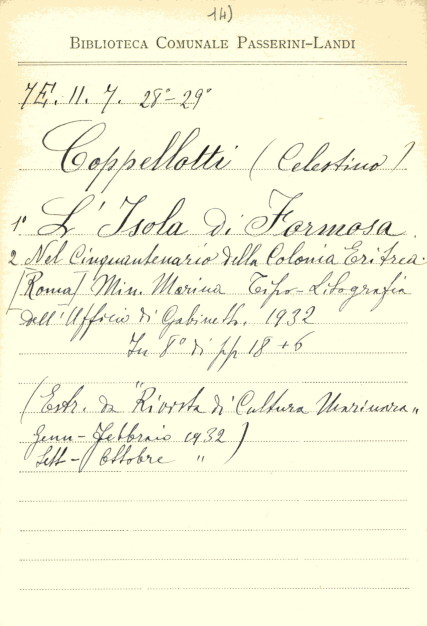 14)
BIBLIOTECA COMUNALE PASSERINI-LANDI
7E. 11. 7. 28°-29°
Coppellotti (Celestino)
1° L'Isola di Formosa.
2 Nel Cinquantenario della Colonia Eritrea.
[Roma] Min. Marina Tipo-Litografia
dell'Ufficio di Gabinetto. 1932
In 8° di pp 18+6
(Estr. da "Rivista di Cultura Marinara"
Genn-Febbraio 1932)
Sett-Ottobre "